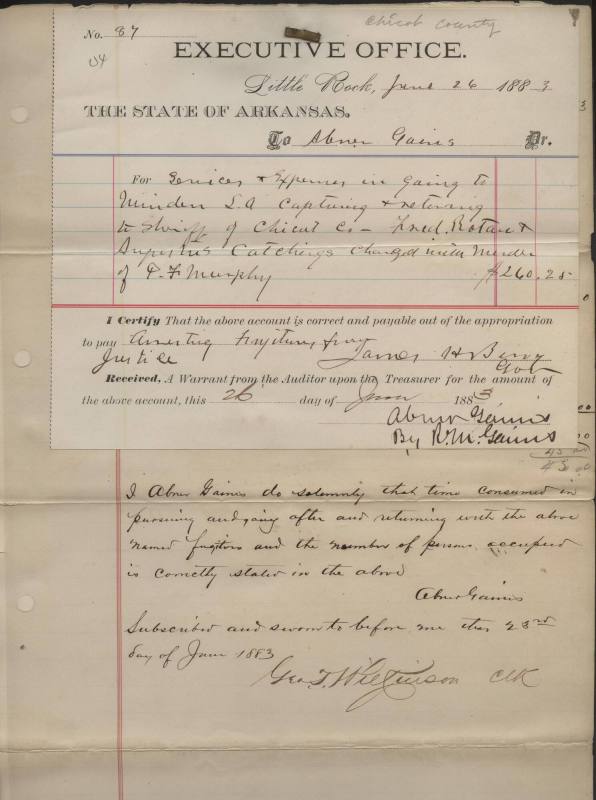 Chicot County
No. 87
04
EXECUTIVE OFFICE.
Little Rock, June 26 1883
THE STATE OF ARKANSAS,
To Abner Gains Dr.
For Services & Expenses in going to
Minden LA Capturing & returing
to Shriff of Chicut Co - Fred. Rotan &
Augustus Catchings Charged with Murder
of P. F. Murphy $260.25
I Certify That the above account is correct and payable out of the appropriation
to pay Arresting Fugitives from
Justice James H Berry
Gov
Received, A Warrant from the Auditor upon the Treasurer for the amount of
the above account, this 26 day of June 1883
Abner Gaines
By R. M. Gaines
45 00
I Abner Gaines do solemnly that time consumed in
pursuing and going after and returning with the above
named fugitives and the number of persons occupied
is correctly stated in the above
Abner Gaines
Subscribed and sworn to before me this 23rd
day of June 1883
Geo. T. Wilkinson Clk